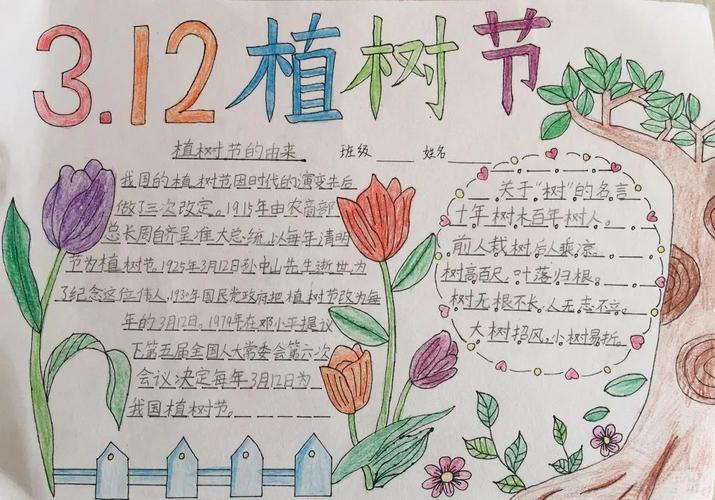 3.12植树节
植树节的由来
班级 姓名
我国的植树节因时代的演变先后
做了三次改定。1915年由农商部
总长周自齐呈准大总统,以每年清明
节为植树节。1925年3月12日孙中山先生逝世,为
了纪念这位伟人,1930年国民党政府把植树节改为每
年的3月12日。1979年在邓小平提议
下第五届全国人大常委会第六次
会议决定每年3月12日为
我国植树节。
关于“树”的名言
十年树木百年树人。
前人栽树后人乘凉。
树高百尺,叶落归根。
树无根不长,人无志不高。
大树招风,小树易折。